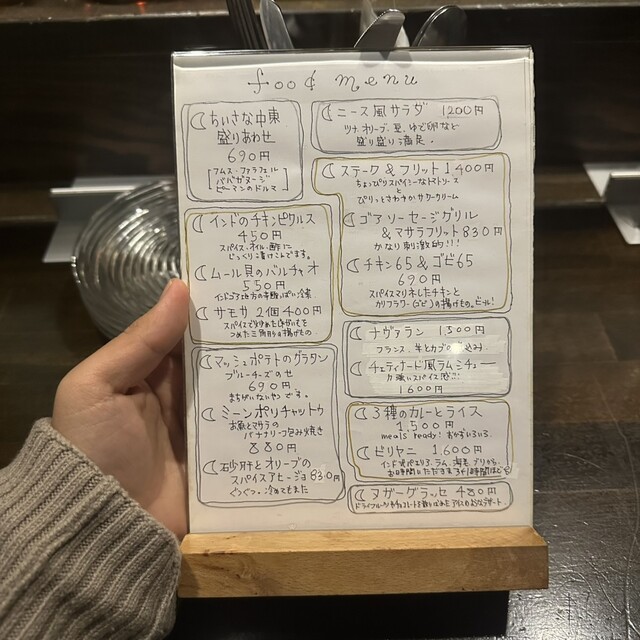 food menu
ちいさな中東
盛りあわせ
690円
[フムス・ファラフェル
ババガヌージ
ピーマンのドルマ]
インドのチキンピクルス
450円
スパイス、オイル、酢に
じっくり漬けこんでます。
ムール貝のバルチャオ
550円
インドゴア地方の辛酸っぱい冷菜
サモサ 2個 400円
スパイスで炒めたじゃがいもを
つめた三角形の揚げもの
マッシュポテトのグラタン
ブルーチーズのせ
690円
まちがいないやつです。
ミーンポリチャットゥ
お魚とマサラの
バナナリーフ包み焼き
880円
砂肝とオリーブの
スパイスアヒージョ 830円
ぐつぐつ。冷めてもまた
ニース風サラダ 1200円
ツナ、オリーブ、豆、ゆで卵など
盛り盛り満足。
ステーク&フリット 1400円
ちょっぴりスパイシーなトマトソース
と
ぴりっとさわやかサワークリーム
ゴアソーセージグリル
&マサラフリット 830円
かなり刺激的!!!
チキン65&ゴビ65
690円
スパイスマリネしたチキンと
カリフラワー(ゴビ)の揚げもの。ビール!
ナヴァラン 1500円
フランス、羊とカブの込み
チェティナード風ラムシチュー
力強いスパイス感
1600円
3種のカレーとライス
1,500円
meals ready! おかずいろいろ
ビリヤニ 1,600円
お時間いただきます
ヌガーグラッセ 480円